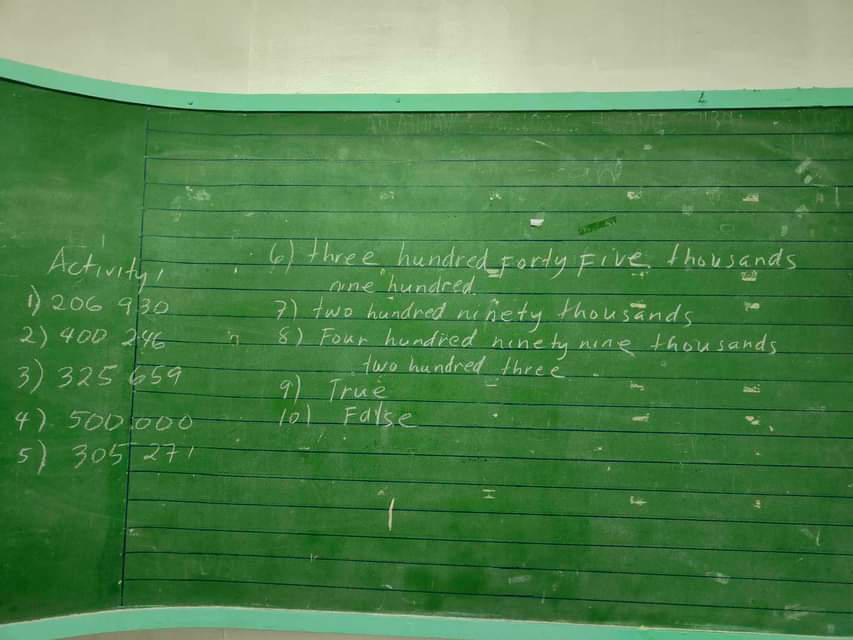 Activity 1
1) 206 930
2) 400 246
3) 325 659
4) 500 000
5) 305 271
6) three hundred forty five thousands
nine hundred
7) two hundred ninety thousands
8) Four hundred ninety nine thousands
two hundred three
9) True
10) False